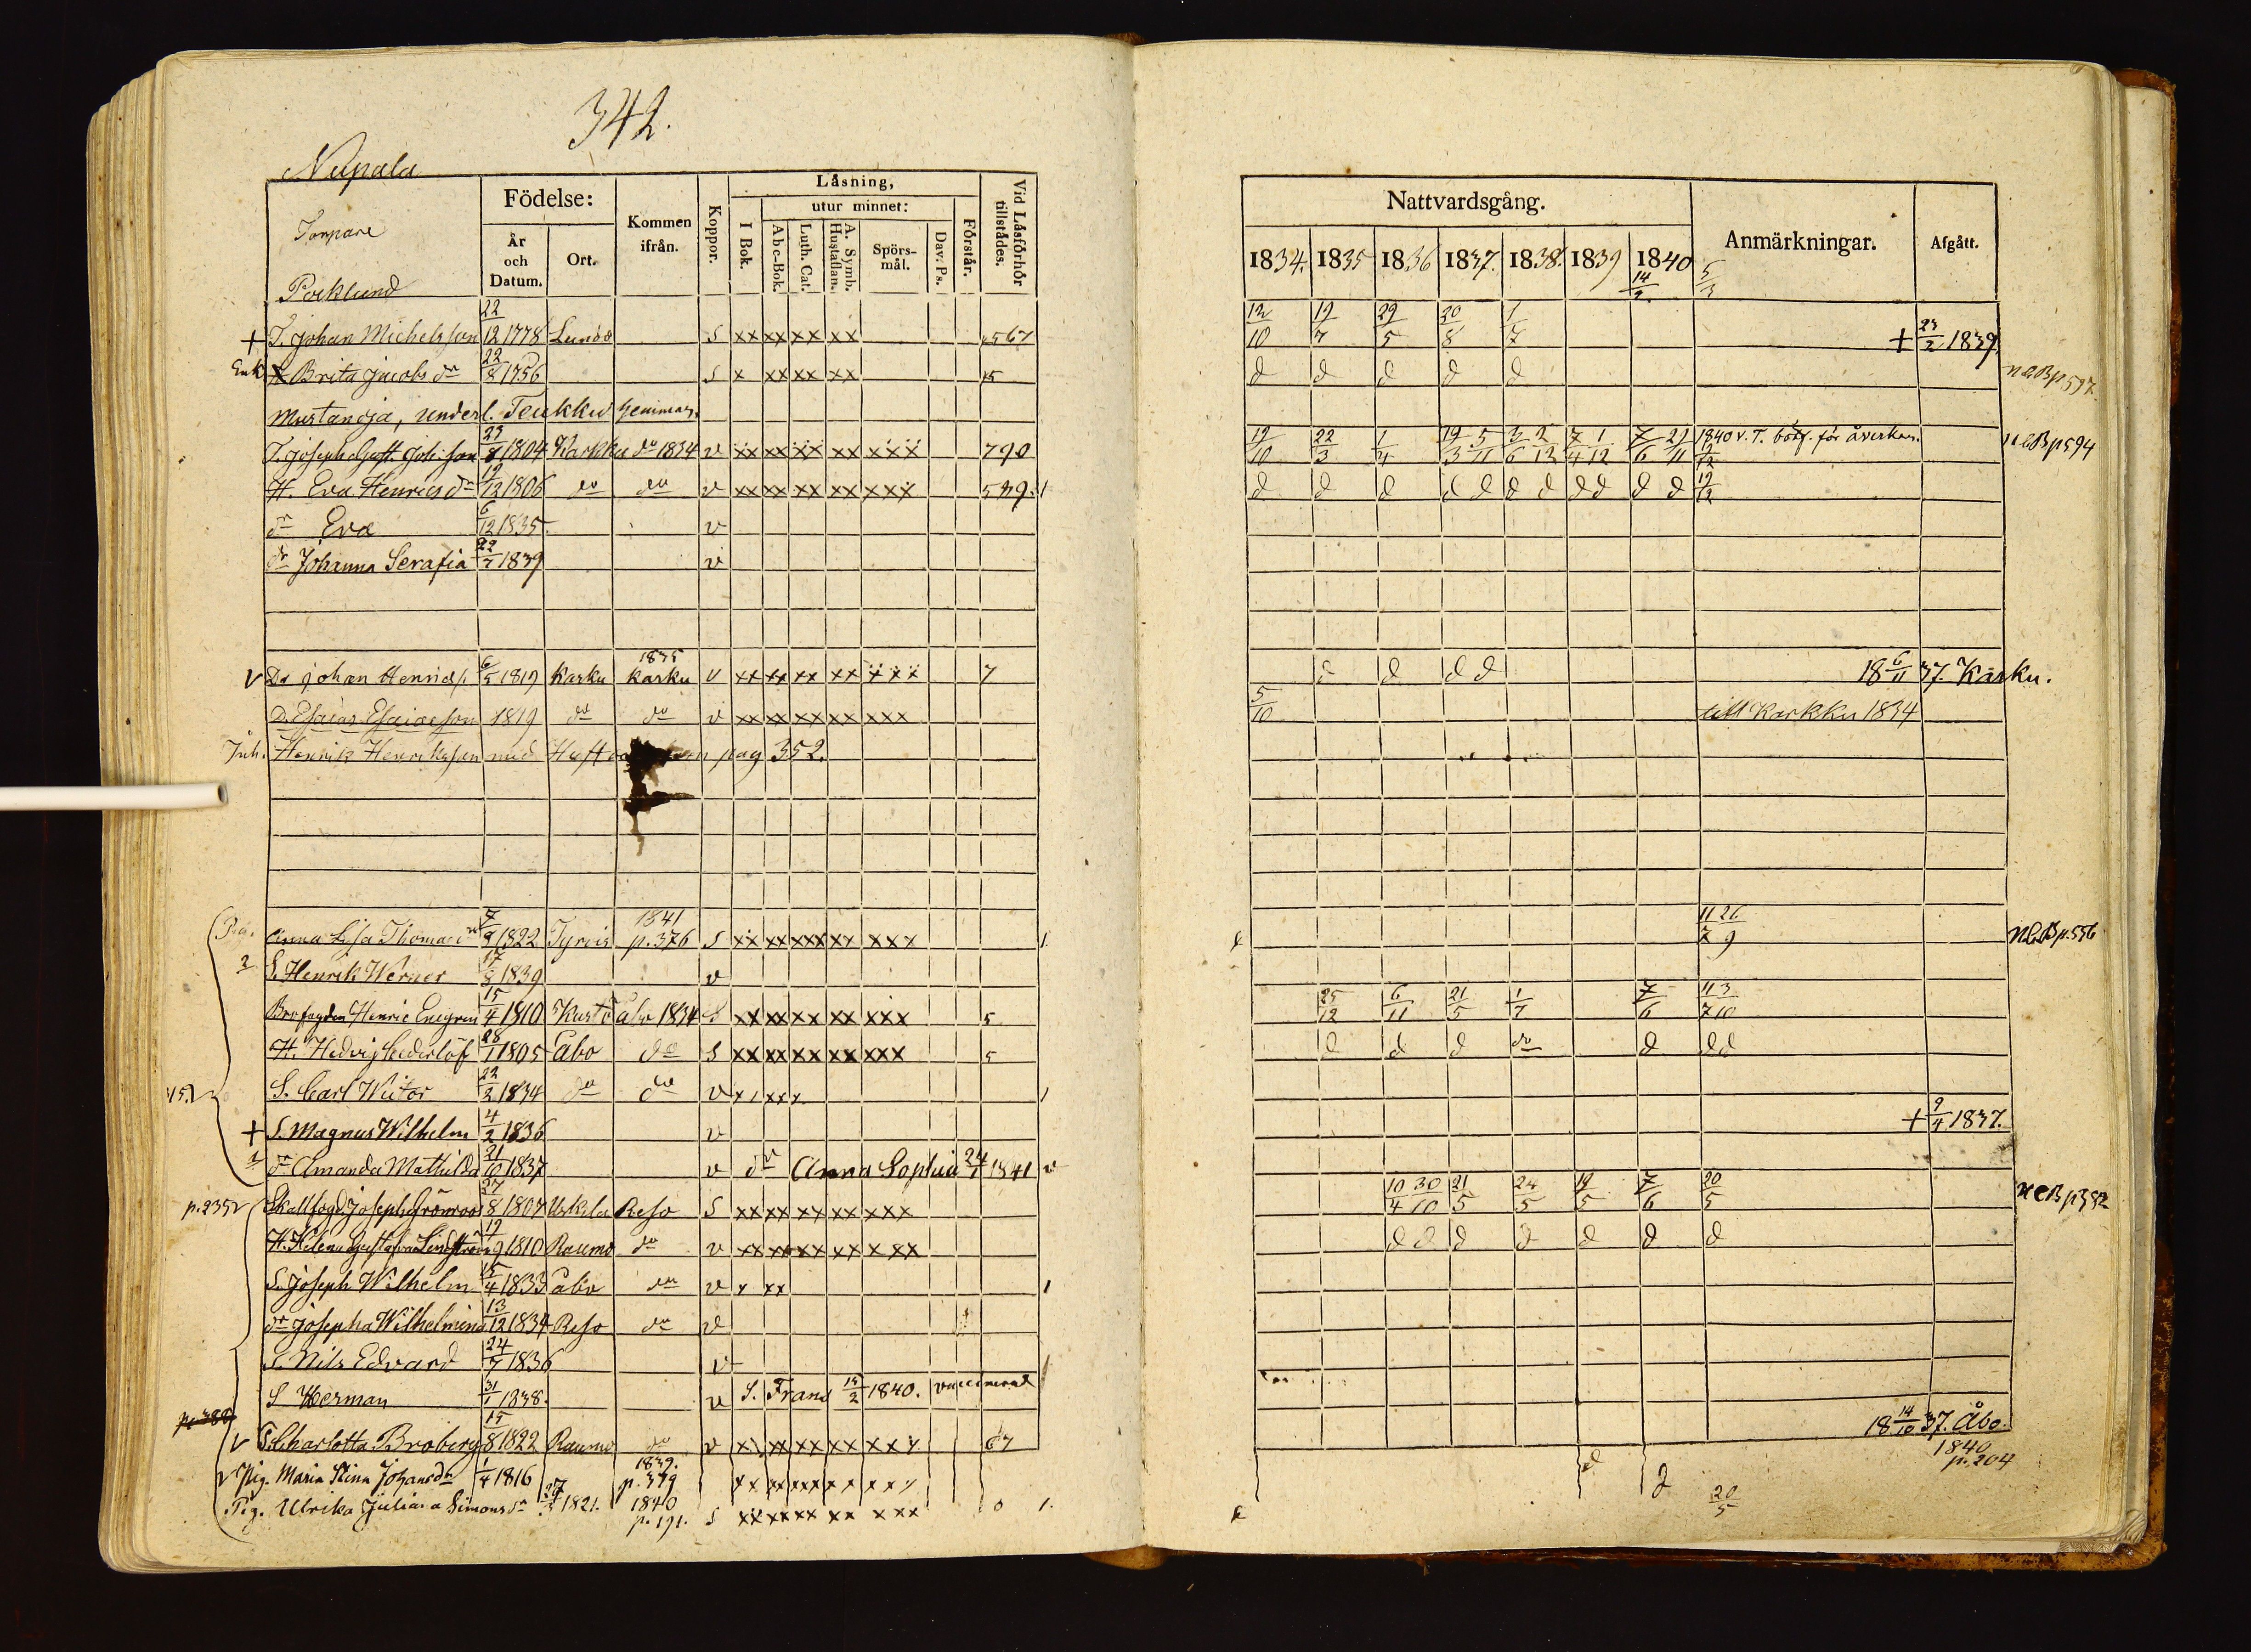 342.
Nupala
Torpare
Födelse:
År och Datum.
Ort.
Kommen ifrån.
Koppor.
Låsning,
I Bok.
utur minnet:
Abc-Bok.
Luth. Cat.
A. Symb. Hustaflan.
Spörs-mål.
Dav. Ps.
Förstår.
Vid Låsförhör tillstådes.
Nattvardsgång.
1834. 1835 1836 1837. 1838. 1839 1840
Anmärkningar.
Afgått.
14/2 5/3
Pocklund
+ T. Johan Michelsson 22/12 1778 Lundo S xx xx xx xx 567 12/10 19/7 29/5 20/8 1/7 + 23/2 1839
Enk. Brita Jacobs dr 22/8 1756 S x xx xx xx 15 d d d d d NCB p 597
Mustanoja, under l. Teukku hemman.
T. Joseph Gust. Joh.son 23/8 1804 Karkku do 1834 v xx xx xx xx xxx 790 19/10 22/3 1/4 19/3 5/11 3/6 2/12 7/4 1/12 7/6 21/11 1840 v. T. böt. för åverkan. NCB p 594
H. Eva Henrics dr 9/12 1806 do do v xx xx xx xx xxx 539. 1 d d d d d d d d d d d 12/12
dr Eva 6/12 1835. v
dr Johanna Serafia 22/7 1839 v
1835
v Dr Johan Henrics. 6/5 1819 Karku Karku v xx xx xx xx xxx 7 d d d d 18 6/11 37. Karku.
D. Esaias Esaiaeson 1819 do do v xx xx xx xx xxx 5/10 till Karkku 1834
Inh. Henrik Henriksson med Hust pag 352.
1841
Pig. Anna Lisa Thomae dr 7/9 1822 Tyrvis p. 376 S xx xx xxx xx xxx 1. 11/7 26/9 NCB p. 556
2 S. Henrik Werner 17/8 1839 v
Brofogden Henric Enegren 15/4 1810 Kustö Åbo 1834 S xx xx xx xx xxx 5 25/12 6/11 21/5 1/7 7/6 11/7 3/10
H. Hedvig Cederlöf 28/1 1805 Åbo do S xx xx xx xx xxx 5 d d d do d dd
S. Carl Victor 22/2 1834 do do v 1
+ S. Magnus Wilhelm 4/2 1836 v + 9/4 1837.
dr Amanda Mathilda 21/10 1837 v dr Anna Sophia 24/1 1841 v
p. 235 v Skallfogd. Joseph Grönroos 27/8 1807 Uskela Reso S xx xx xx xx xxx 10/4 30/10 21/5 24/5 19/5 7/6 20/5 NCB p 382
H. Helena Gustafva Lindström 19/9 1810 Raumo do v xx xx xx xx xxx d d d d d d d
S. Joseph Wilhelm 15/4 1833 Åbo do v x xx 1
dr Josepha Wilhelmina 13/12 1834 Reso do v
S. Nils Edvard 24/7 1836 v
S Herman 31/1 1838. v S. Frans 15/2 1840. vaccinerad
v S. Charlotta Broberg 15/8 1822 Raumo do v xx xx xx xx xxx 67 18 14/10 37. Åbo.
1839. 1840
v Pig. Maria Stina Johans dr 1/4 1816 p. 379 xx xx xxx xx xxx d d p. 204
Pig. Ulrika Juliana Simons dr 27/3 1821. 1840 p. 191. S xx xx xx xx xxx 0 1. 20/5